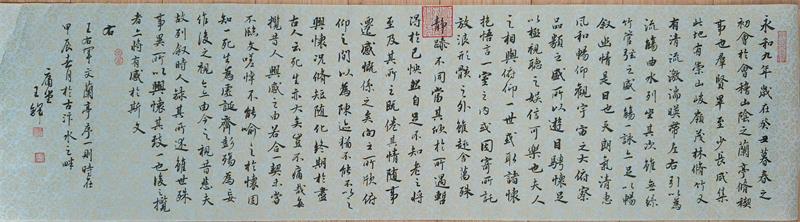 永和九年歲在癸丑暮春之
初會於會稽山陰之蘭亭脩稧
事也群賢畢至少長咸集
此地有崇山峻嶺茂林脩竹又
有清流激湍暎帶左右引以為
流觴曲水列坐其次雖無絲
竹管弦之盛一觴一詠亦足以暢
叙幽情是日也天朗氣清惠
風和暢仰觀宇宙之大俯察
品類之盛所以遊目騁懷足
以極視聽之娛信可樂也夫人
之相與俯仰一世或取諸懷
抱悟言一室之內或因寄所託
放浪形骸之外雖趣舍萬殊
靜躁不同當其欣於所遇暫
得於己快然自足不知老之將
至及其所之既倦情隨事
遷感慨係之矣向之所欣俯
仰之間以為陳迹猶不能不以之
興懷況脩短隨化終期於盡
古人云死生亦大矣豈不痛哉每
攬昔人興感之由若合一契未嘗
不臨文嗟悼不能喻之於懷固
知一死生為虛誕齊彭殤為妄
作後之視今亦由今之視昔悲夫
故列叙時人錄其所述雖世殊
事異所以興懷其致一也後之攬
者亦將有感於斯文
右
王右軍文蘭亭序一則時在
甲辰春月於古汴水之畔